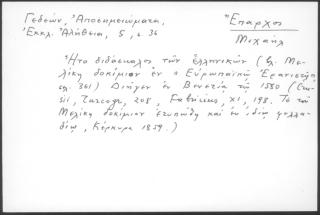 Γεδεών, Ἀποσημειώματα,
Ἐκκλ. Ἀλήθεια, 5, σ. 36
Ἔπαρχος
Μιχαήλ
Ἦτο διδάσκαλος τῶν ἑλληνικῶν (βλ. Με-
λίκη δοκίμιον ἐν Εὐρωπαϊκῷ Ἐρανιστῇ
σελ. 361) Διῆγεν ἐν Βενετίᾳ τῷ 1580 (Cru-
sii, Turcogr, 208, Fabricius, XI, 198. Τὸ τοῦ
Μελίκη δοκίμιον ἐτυπώθη καὶ ἐν ἰδίῳ φυλλα-
δίῳ, Κέρκυρα 1859.)